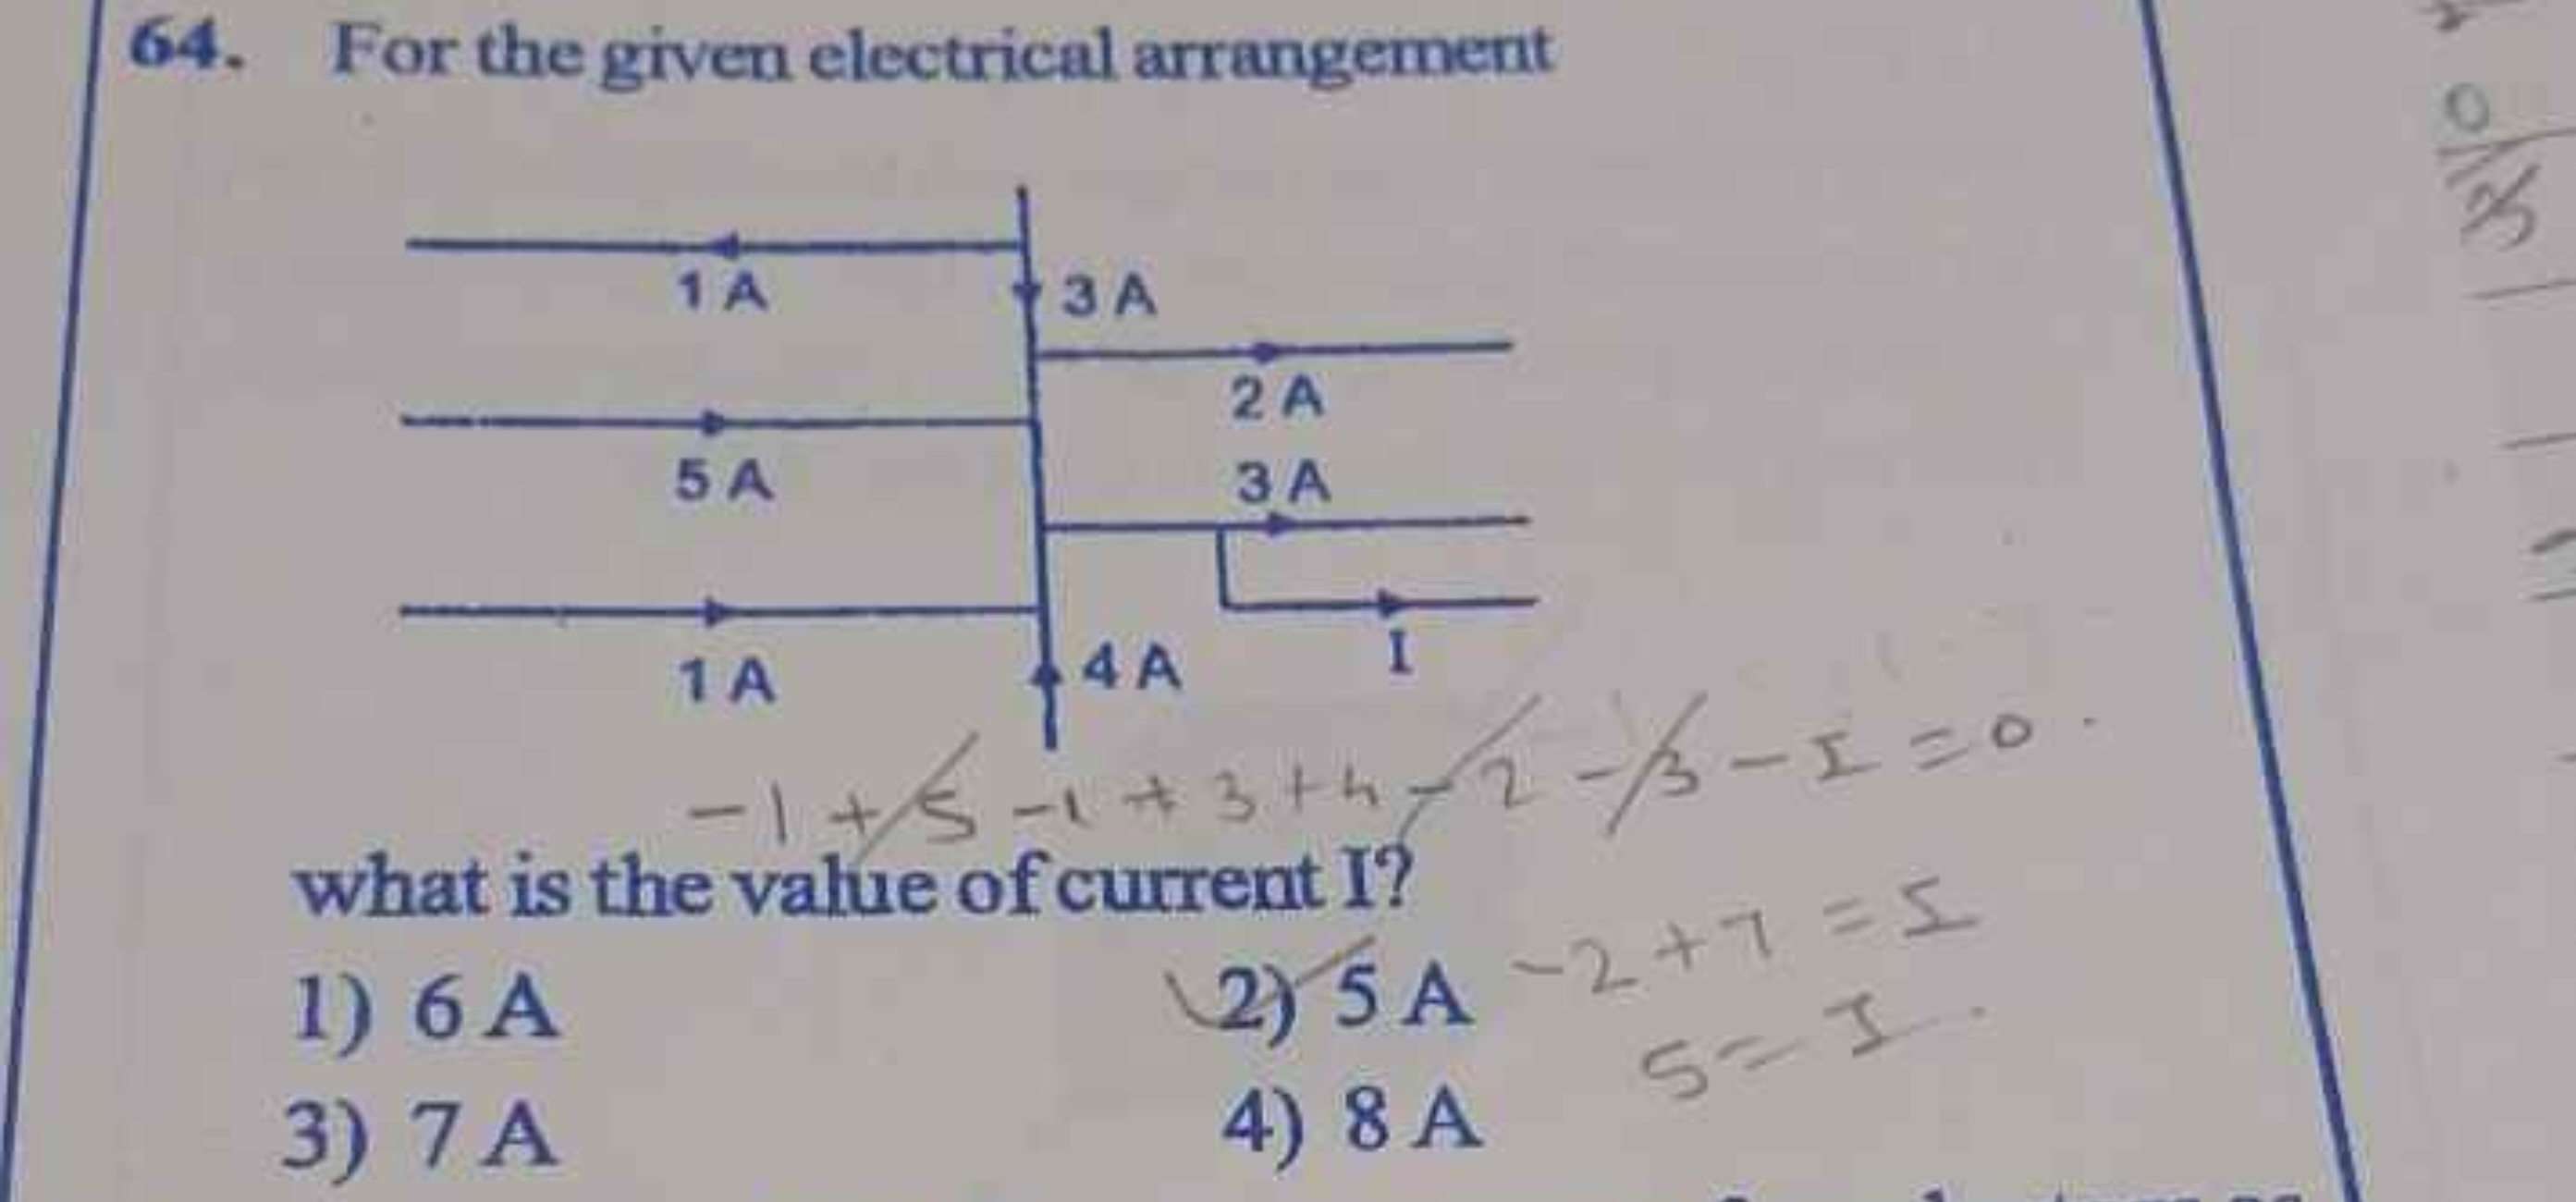 64. For the given electrical arrangement
1 A
3 A
2 A
5 A
3 A
1 A
4 A
I
-1 + 5 -1 + 3 + 4 - 2 - 3 - I = 0.
what is the value of current I?
-2 + 7 = I
1) 6 A 2) 5 A
5 = I.
3) 7 A 4) 8 A